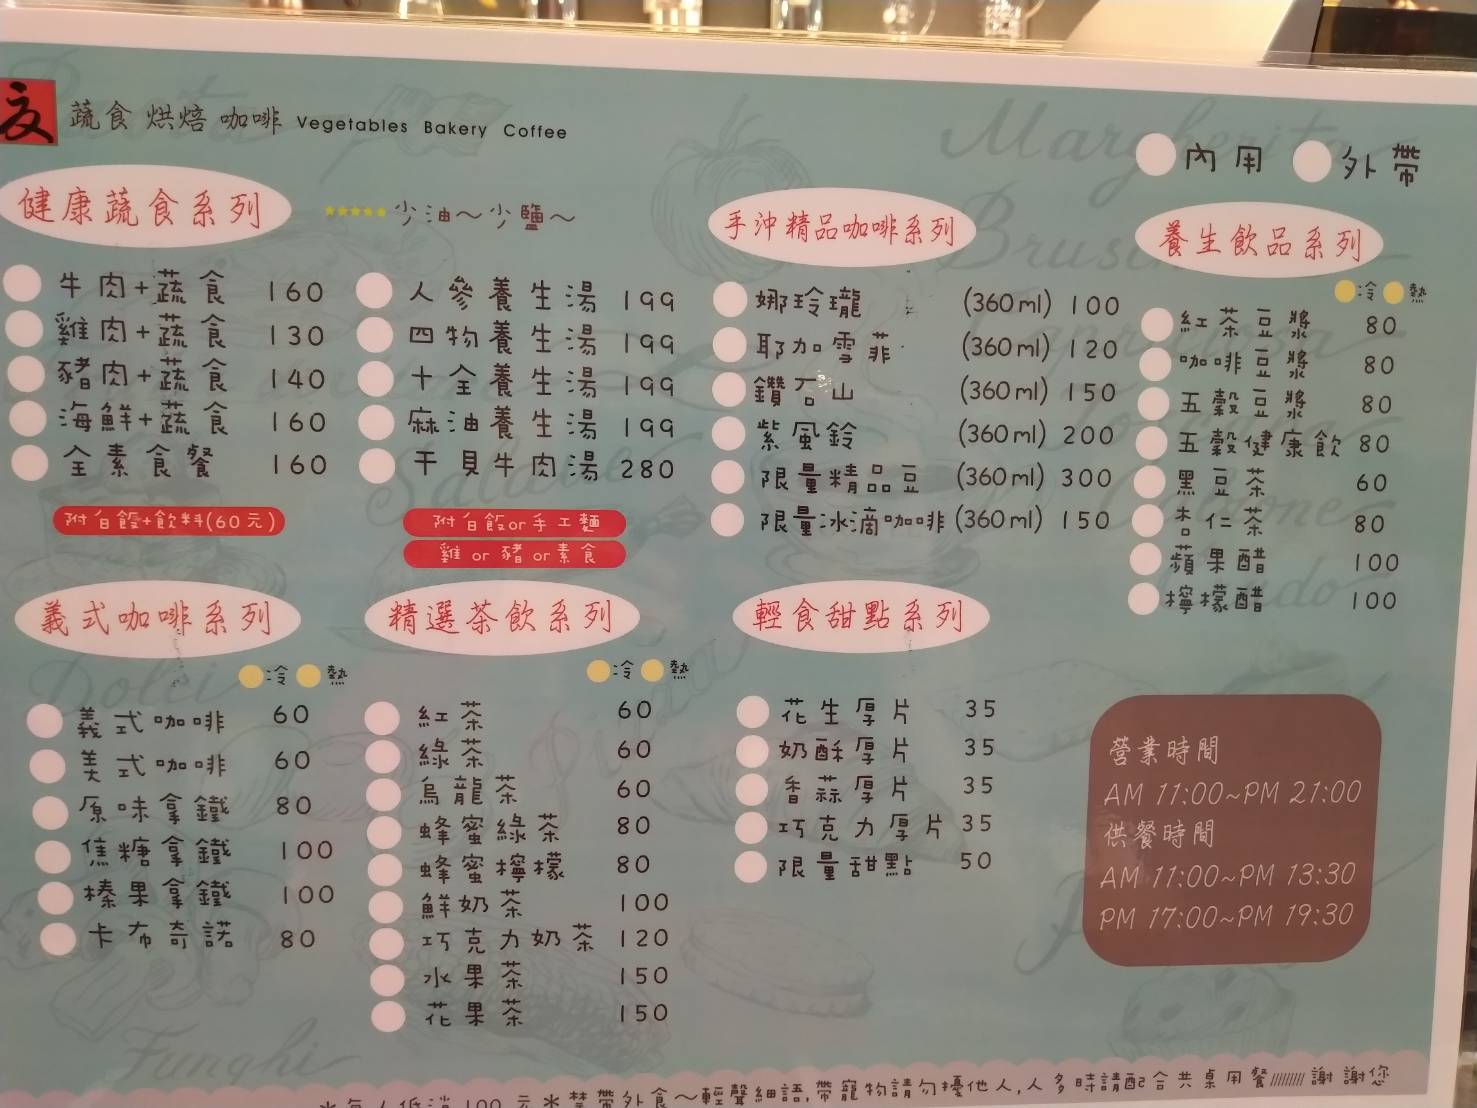 友 蔬食 烘焙 咖啡 Vegetables Bakery Coffee
內用 外帶
健康蔬食系列
★★★★★ 少油～少鹽～
牛肉+蔬食 160
雞肉+蔬食 130
豬肉+蔬食 140
海鮮+蔬食 160
全素食餐 160
附白飯+飲料(60元)
人參養生湯 199
四物養生湯 199
十全養生湯 199
麻油養生湯 199
干貝牛肉湯 280
附白飯or手工麵
雞 or 豬 or 素食
手沖精品咖啡系列
娜玲瓏 (360ml) 100
耶加雪菲 (360ml) 120
鑽石山 (360ml) 150
紫風鈴 (360ml) 200
限量精品豆 (360ml) 300
限量冰滴咖啡 (360ml) 150
養生飲品系列
冷 熱
紅茶豆漿 80
咖啡豆漿 80
五穀豆漿 80
五穀健康飲 80
黑豆茶 60
杏仁茶 80
蘋果醋 100
檸檬醋 100
義式咖啡系列
冷 熱
義式咖啡 60
美式咖啡 60
原味拿鐵 80
焦糖拿鐵 100
榛果拿鐵 100
卡布奇諾 80
精選茶飲系列
冷 熱
紅茶 60
綠茶 60
烏龍茶 60
蜂蜜綠茶 80
蜂蜜檸檬 80
鮮奶茶 100
巧克力奶茶 120
水果茶 150
花果茶 150
輕食甜點系列
花生厚片 35
奶酥厚片 35
香蒜厚片 35
巧克力厚片 35
限量甜點 50
營業時間
AM 11:00~PM 21:00
供餐時間
AM 11:00~PM 13:30
PM 17:00~PM 19:30
※每人低消100元※禁帶外食～輕聲細語,帶寵物請勿擾他人,人多時請配合共桌用餐///////// 謝謝您